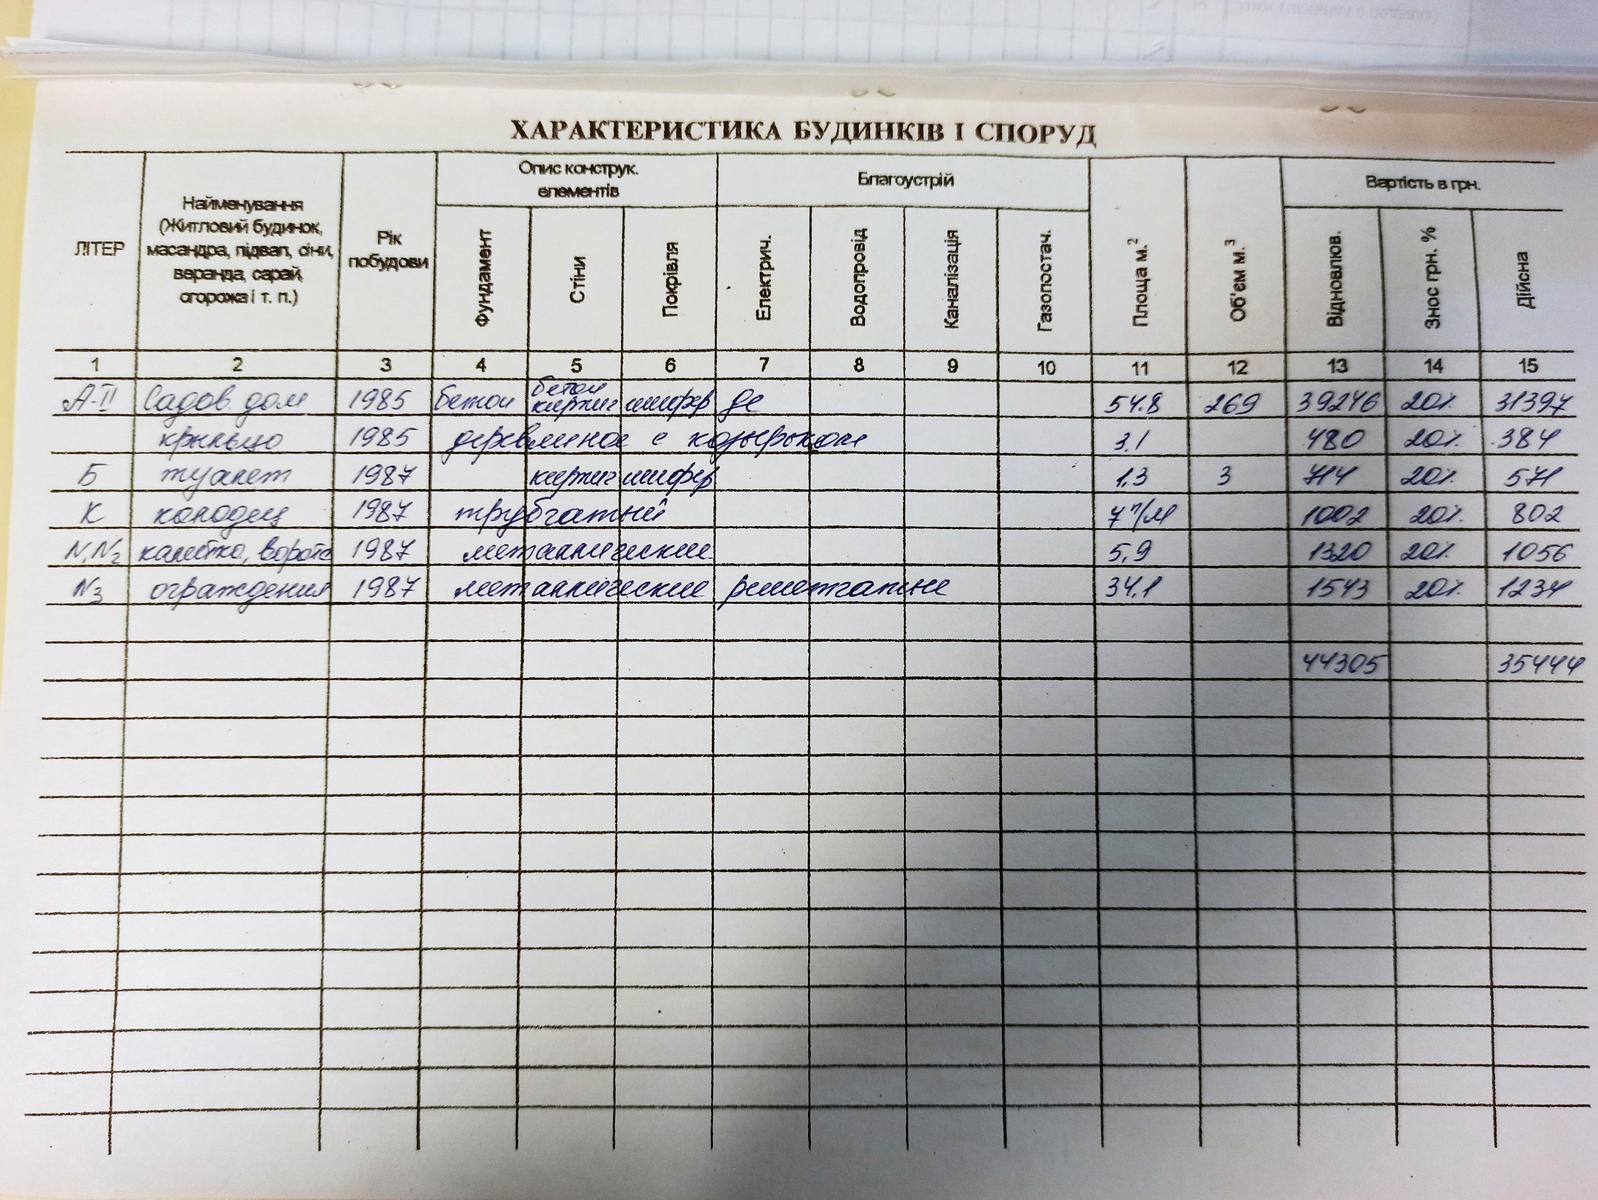 ХАРАКТЕРИСТИКА БУДИНКІВ І СПОРУД
ЛІТЕР
Найменування
(Житловий будинок,
масандра, підвал, сіни,
веранда, сарай,
огорожа і т. п.)
Рік
побудови
Опис конструк.
елементів
Фундамент
Стіни
Покрівля
Благоустрій
Електрич.
Водопровід
Каналізація
Газопостач.
Площа м.²
Об'єм м.³
Вартість в грн.
Відновлюв.
Знос грн. %
Дійсна
1 2 3 4 5 6 7 8 9 10 11 12 13 14 15
А-II Садов. дом 1985 бетон бетон кирпич шифер де 54.8 269 39246 20% 31397
крыльцо 1985 деревянное с козырьком 3.1 480 20% 384
Б туалет 1987 кирпич шифер 1.3 3 714 20% 571
К колодец 1987 трубчатый 7 п/м 1002 20% 802
N1N2 калитка, ворота 1987 металлические 5,9 1320 20% 1056
N3 ограждения 1987 металлические решетчатые 34.1 1543 20% 1234
44305 35444